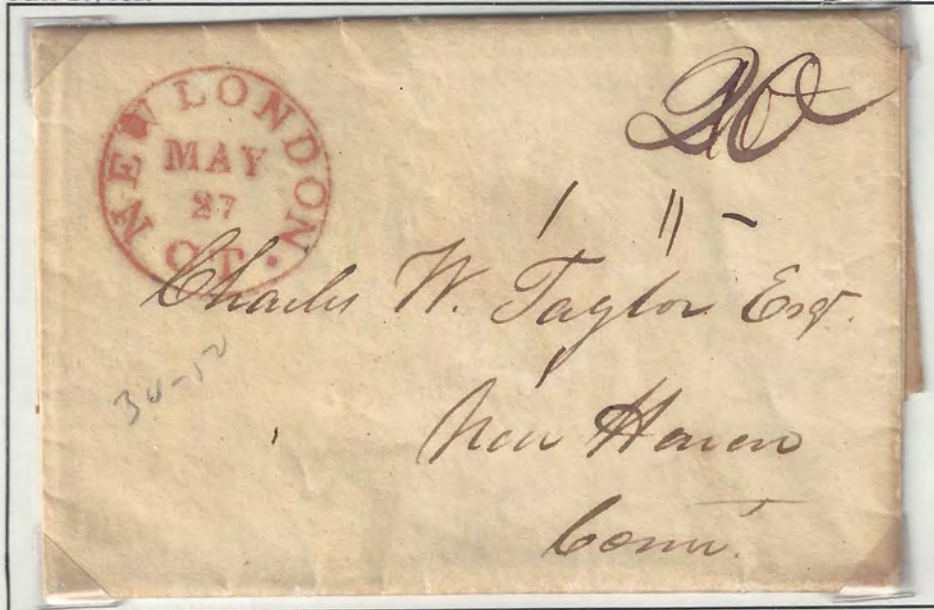 NEW LONDON
MAY
27
CT.
20
Charles W. Taylor Esqr.
New Haven
Conn.